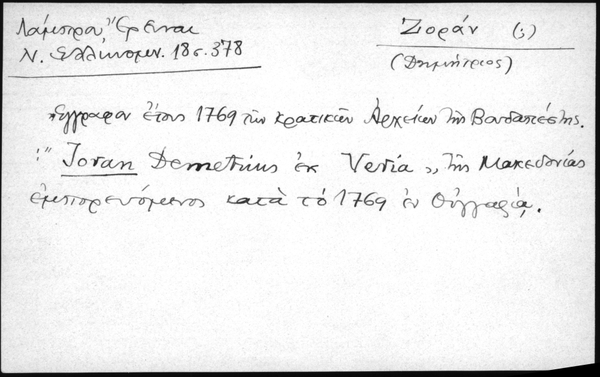 Λάμπρου, "Ἔρευναι
Ν. Ἑλληνομν. 18 σ. 378
Ζοράν (;)
(Δημήτριος)
Ἔγγραφον ἔτους 1769 τῶν κρατικῶν Ἀρχείων τῆς Βουδαπέστης.
:" Joran Demetrius ἐκ Veria „ τῆς Μακεδονίας
ἐμπορευόμενος κατὰ τὸ 1769 ἐν Οὑγγαρίᾳ.